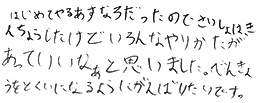 はじめてやるあすなろだったのでさいしょはき
んちょうしたけどいろんなやりかたが
あっていいなぁと思いました。べんきょ
うをとくいになるようにがんばりたいです。